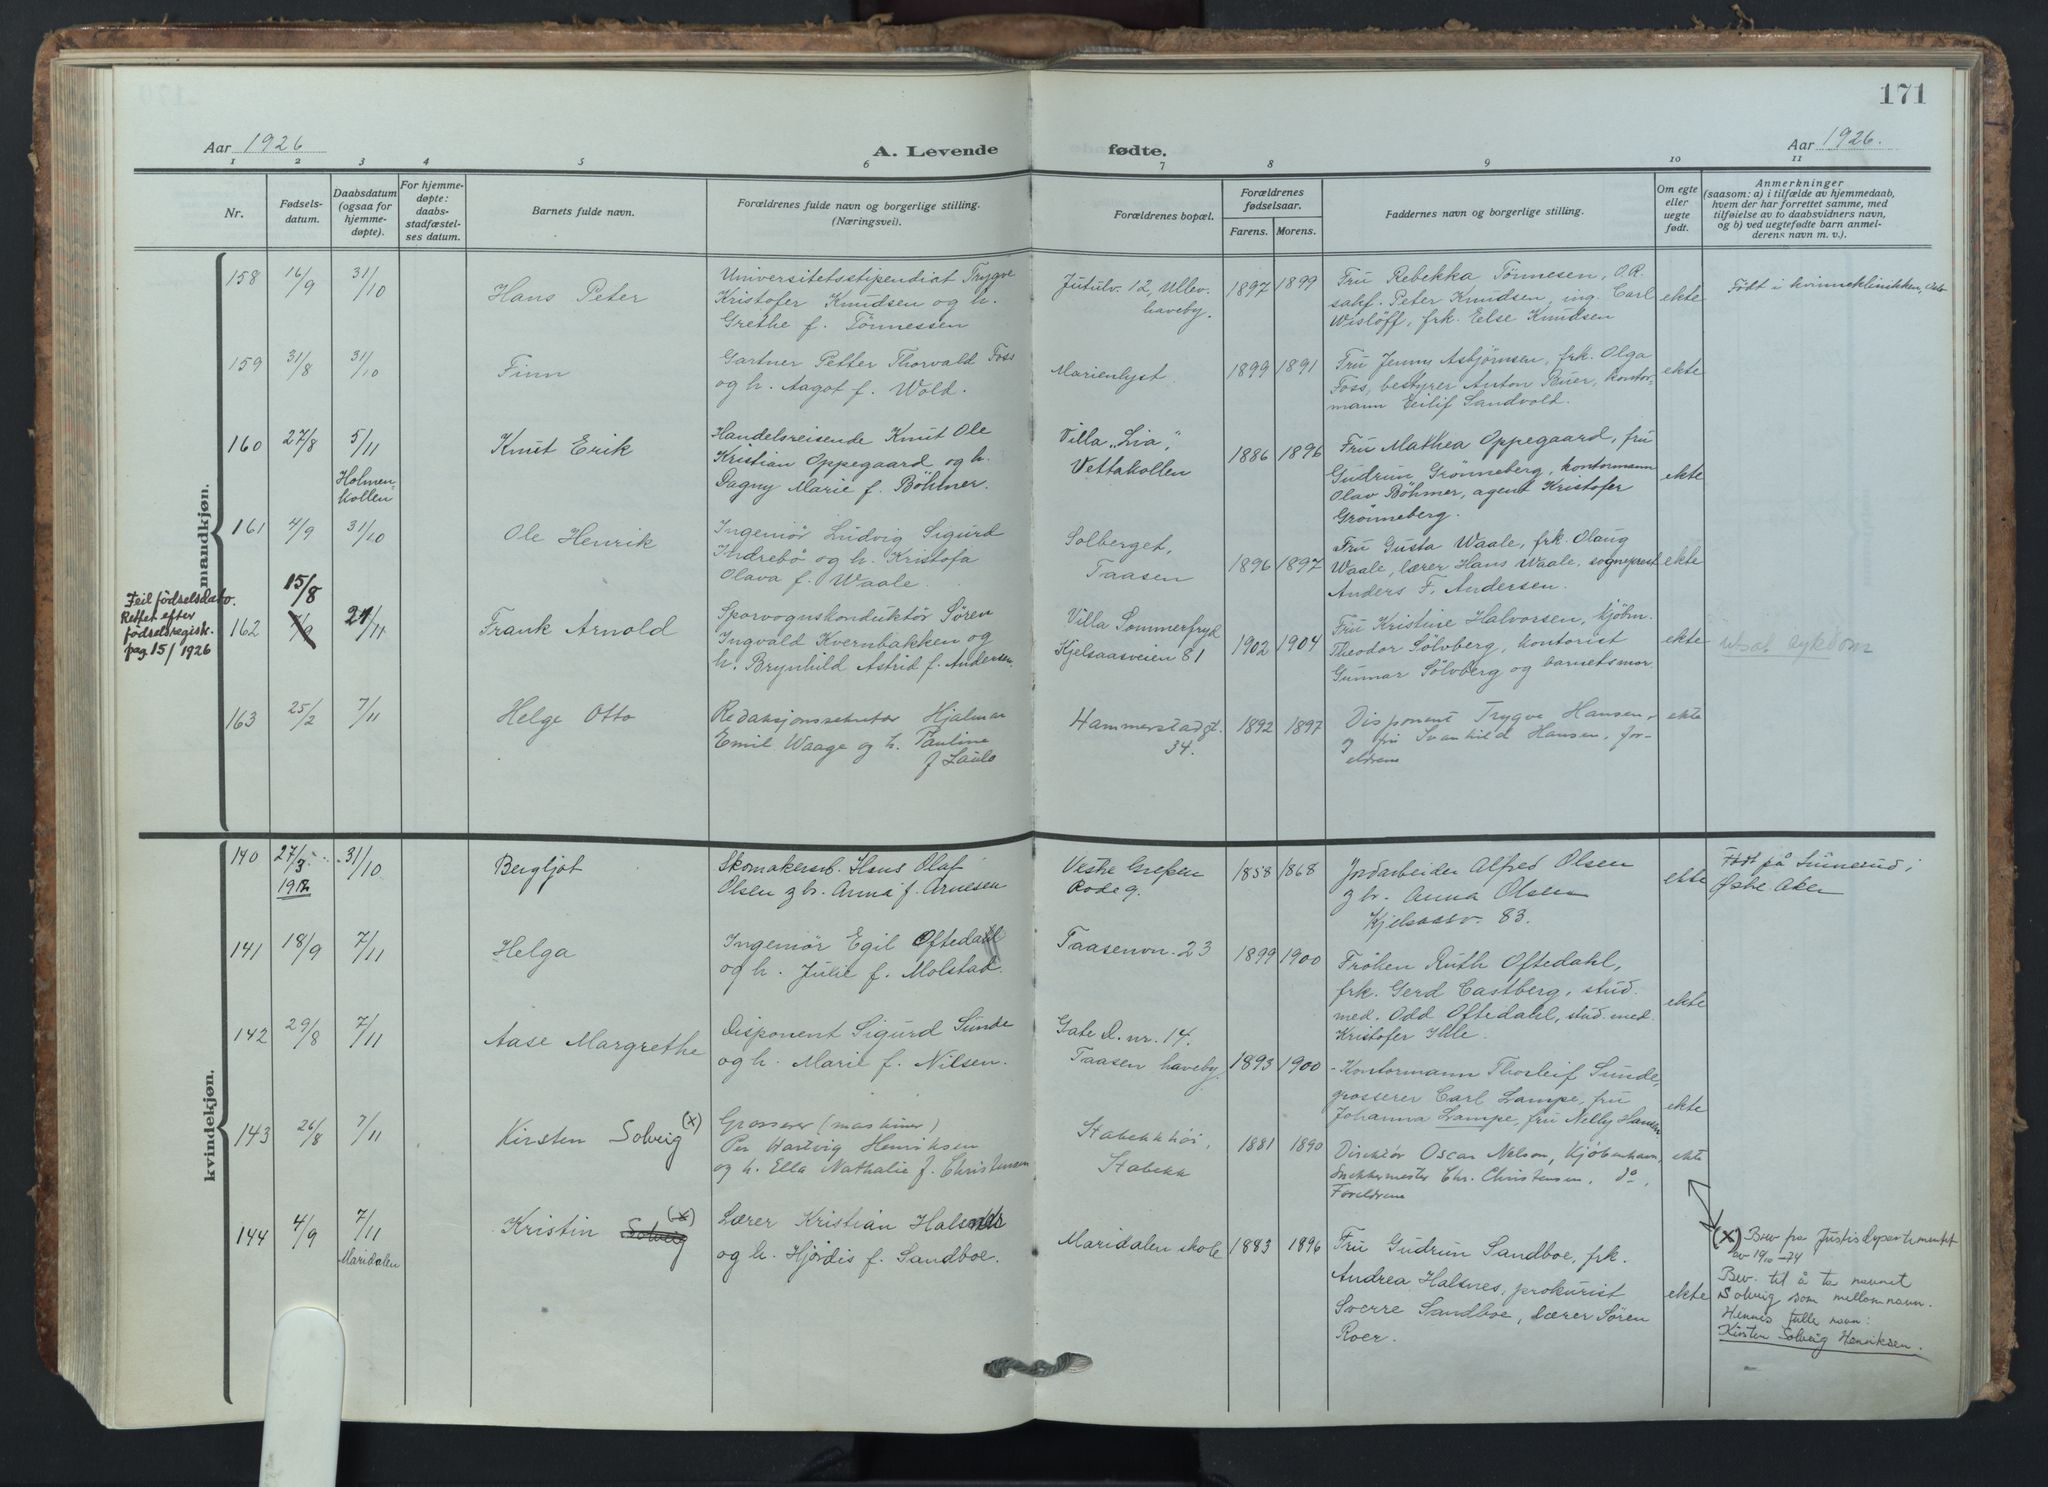 171
Aar 1926
A. Levende fødte.
Aar 1926.
1 2 3 4 5 6 7 8 9 10 11
Nr.
Fødsels-
datum.
Daabsdatum
(ogsaa for
hjemme-
døpte).
For hjemme-
døpte:
daabs-
stadfæstel-
ses datum.
Barnets fulde navn.
Forældrenes fulde navn og borgerlige stilling.
(Næringsvei).
Forældrenes bopæl.
Forældrenes
fødselsaar.
Farens. Morens.
Faddernes navn og borgerlige stilling.
Om egte
eller
uegte
født.
Anmerkninger
(saasom: a) i tilfælde av hjemmedaab,
hvem der har forrettet samme, med
tilføielse av to daabsvidners navn,
og b) ved uegtefødte barn anmel-
derens navn m. v.).
mandkjøn.
158 16/9 31/10
Hans Peter
Universitetsstipendiat Trygve
Kristofer Knudsen og h.
Grethe f. Tönnessen
Jutulv. 12, Ullev.
haveby.
1897 1899
Fru Rebekka Tönnesen, O.R.
sakf. Peter Knudsen, ing. Carl
Wislöff, frk. Else Knudsen
ekte
Født i kvinneklinikken, Oslo
159 31/8 31/10
Finn
Gartner Petter Thorvald Foss
og h. Aagot f. Wold.
Marienlyst.
1899 1891
Fru Jenny Asbjørnsen, frk. Olga
Foss, bestyrer Anton Buer, kontor-
mann Eilif Sandvold.
ekte
160 27/8 5/11
Holmen-
kollen
Knut Erik
Handelsreisende Knut Ole
Kristian Oppegaard og h.
Dagny Marie f. Böhmer.
Villa "Lia",
Vettakollen
1886 1896
Fru Mathea Oppegaard, fru
Gudrun Grönneberg, kontormann
Olav Böhmer, agent Kristofer
Grönneberg.
ekte
161 4/9 31/10
Ole Henrik
Ingeniör Ludvig Sigurd
Indrebö og h. Kristofa
Olava f. Waale.
Solberget,
Taasen
1896 1897
Fru Gusta Waale, frk. Olaug
Waale, lærer Hans Waale, sogneprest
Anders F. Andersen.
ekte
Feil fødselsdato.
Rettet efter
fødselsregistr.
pag. 15/1926
162 15/8 21/11
Frank Arnold
Sporvognskonduktör Sören
Ingvald Kvernbakken og
h. Brynhild Astrid f. Andersen.
Villa Sommerfryd
Kjelsaasveien 81
1902 1904
Fru Kristine Halvorsen, kjöbm.
Theodor Sölvberg, kontorist
Gunnar Sölvberg og barnets mor
ekte
utsat sykdom
163 25/2 7/11
Helge Otto
Redaksjonssekretær Hjalmar
Emil Waage og h. Pauline
Hammerstadgt.
34.
1892 1897
Disponent Trygve Hansen,
og fru Svanhild Hansen, for-
eldrene
ekte
kvindekjøn.
140 27/3 1912 31/10
Bergljot
Skomakersv. Hans Olaf
Olsen og h. Anna f. Arnesen
Vestre Grefsen
Rode 9.
1858 1868
Jordarbeider Alfred Olsen
og h. Anna Olsen
Kjelsaasv. 83.
ekte
Født på i
Østre Aker
141 18/9 7/11
Helga
Ingeniör Egil Oftedahl
og h. Julie f. Molstad.
Taasenvn. 23
1899 1900
Fröken Ruth Oftedahl,
frk. Gerd Castberg, stud.
med. Odd Oftedahl, stud. med.
Kristofer Ille.
ekte
142 29/8 7/11
Aase Margrethe
Disponent Sigurd Sunde
og h. Marie f. Nilsen.
Gate D. nr. 14.
Taasen haveby.
1893 1900
Kontormann Thorleif Sunde,
grosserer Carl Lampe, fru
Johanna Lampe, fru Nelly Hansen
ekte
143 26/8 7/11
Kirsten Solveig (x)
Grosserer (maskiner)
Per Hartvig Henriksen
og h. Ella Nathalie f. Christensen
Stabekk
1881 1890
Direktör Oscar Nelson, Kjöbenhavn,
Snekkermester Chr. Christensen, do,
Foreldrene
ekte
144 4/9 7/11
Maridalen
Kristin Solveig (x)
Lærer Kristian Halsnes
og h. Hjördis f. Sandboe.
Maridalen skole
1883 1896
Fru Gudrun Sandboe, frk.
Andrea Halsnes, prokurist
Sverre Sandboe, lærer Sören
Roer.
ekte
(x) Brev fra Justisdepartementet
av 19/10 -74
Bev. til å ta navnet
Solveig som mellomnavn.
Hennes fulle navn:
Kirsten Solveig Henriksen.